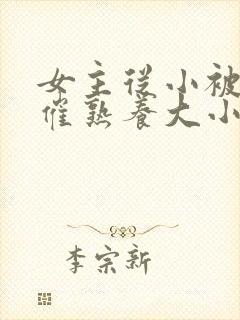 女主从小被
催熟养大小
李宗新